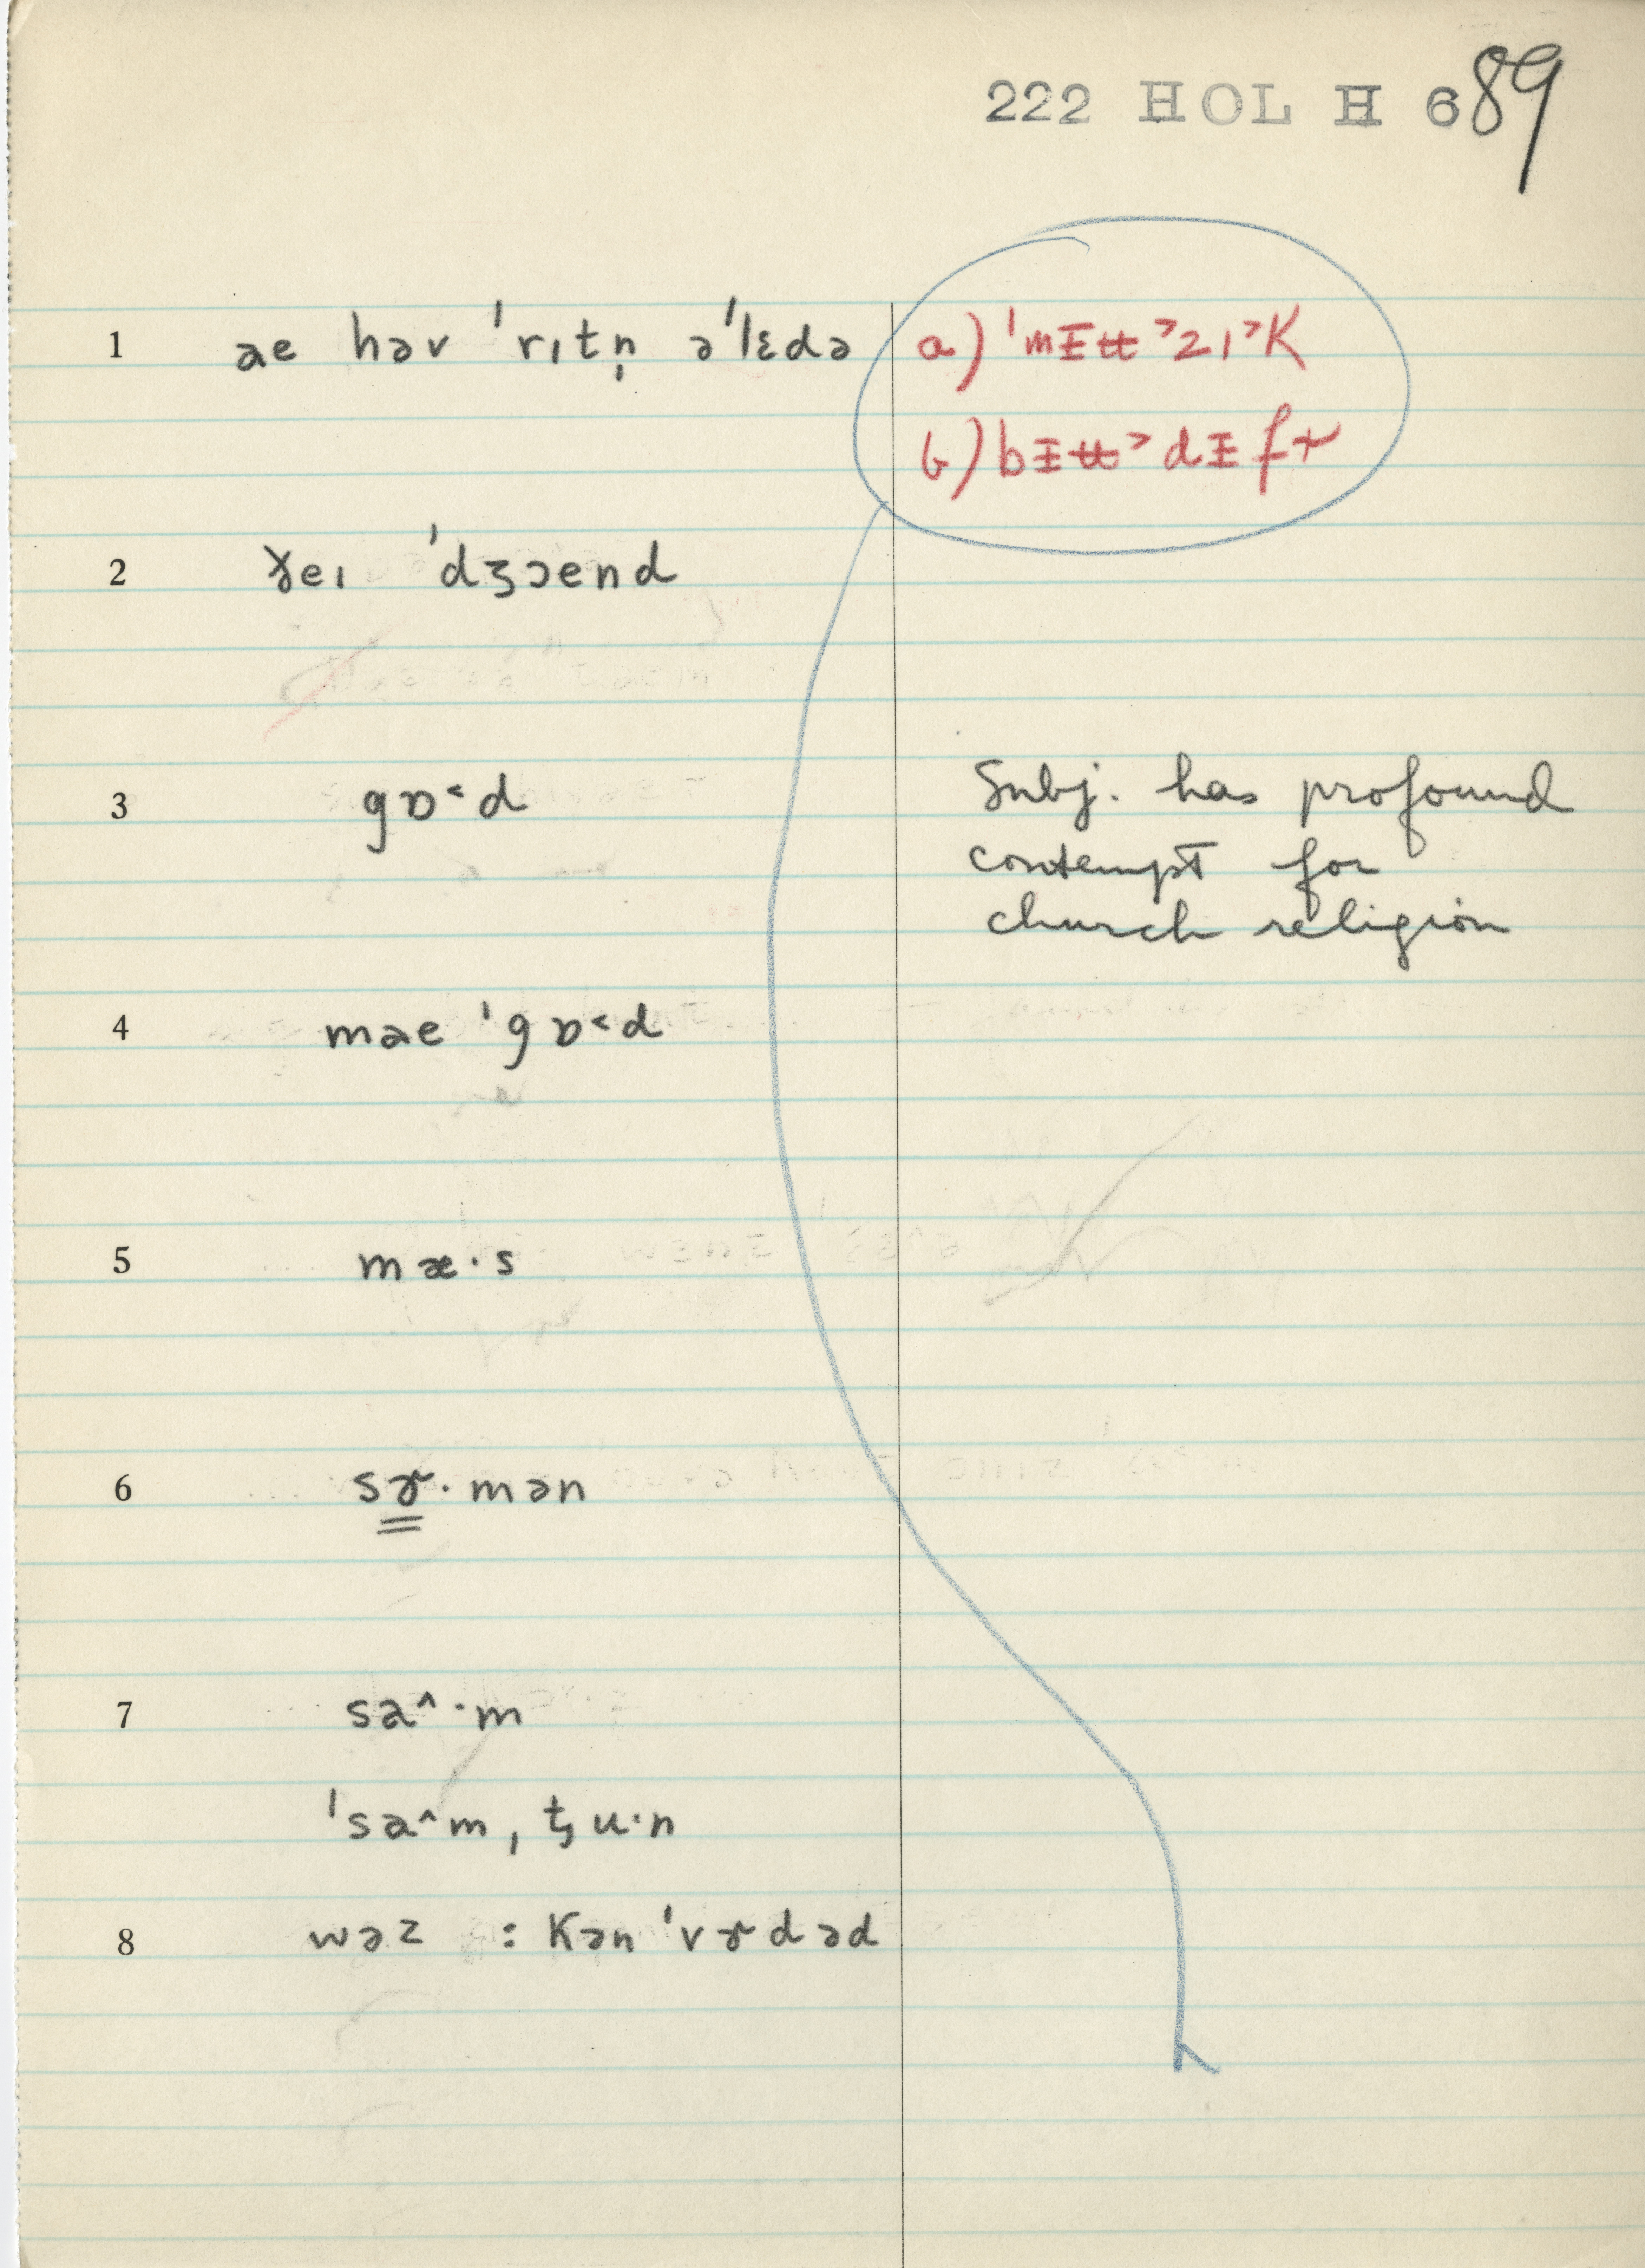 222 HOL H 689
1 ae həv ˈrɪtn̩ əˈlɛdə
a) ˈmɪʉ˃zɪ˃K
b) bɪʉ˃dɪfɚ
2 ɣeɪ ˈdʒɔend
3 gɒ˂d
Subj. has profound
contempt for
church religion
4 mae ˈgɒ˂d
5 mæ·s
6 sɚ·mən
7 sa^·m
ˈsa^mˌtʃu·n
8 wəz : Kənˈvɚdəd